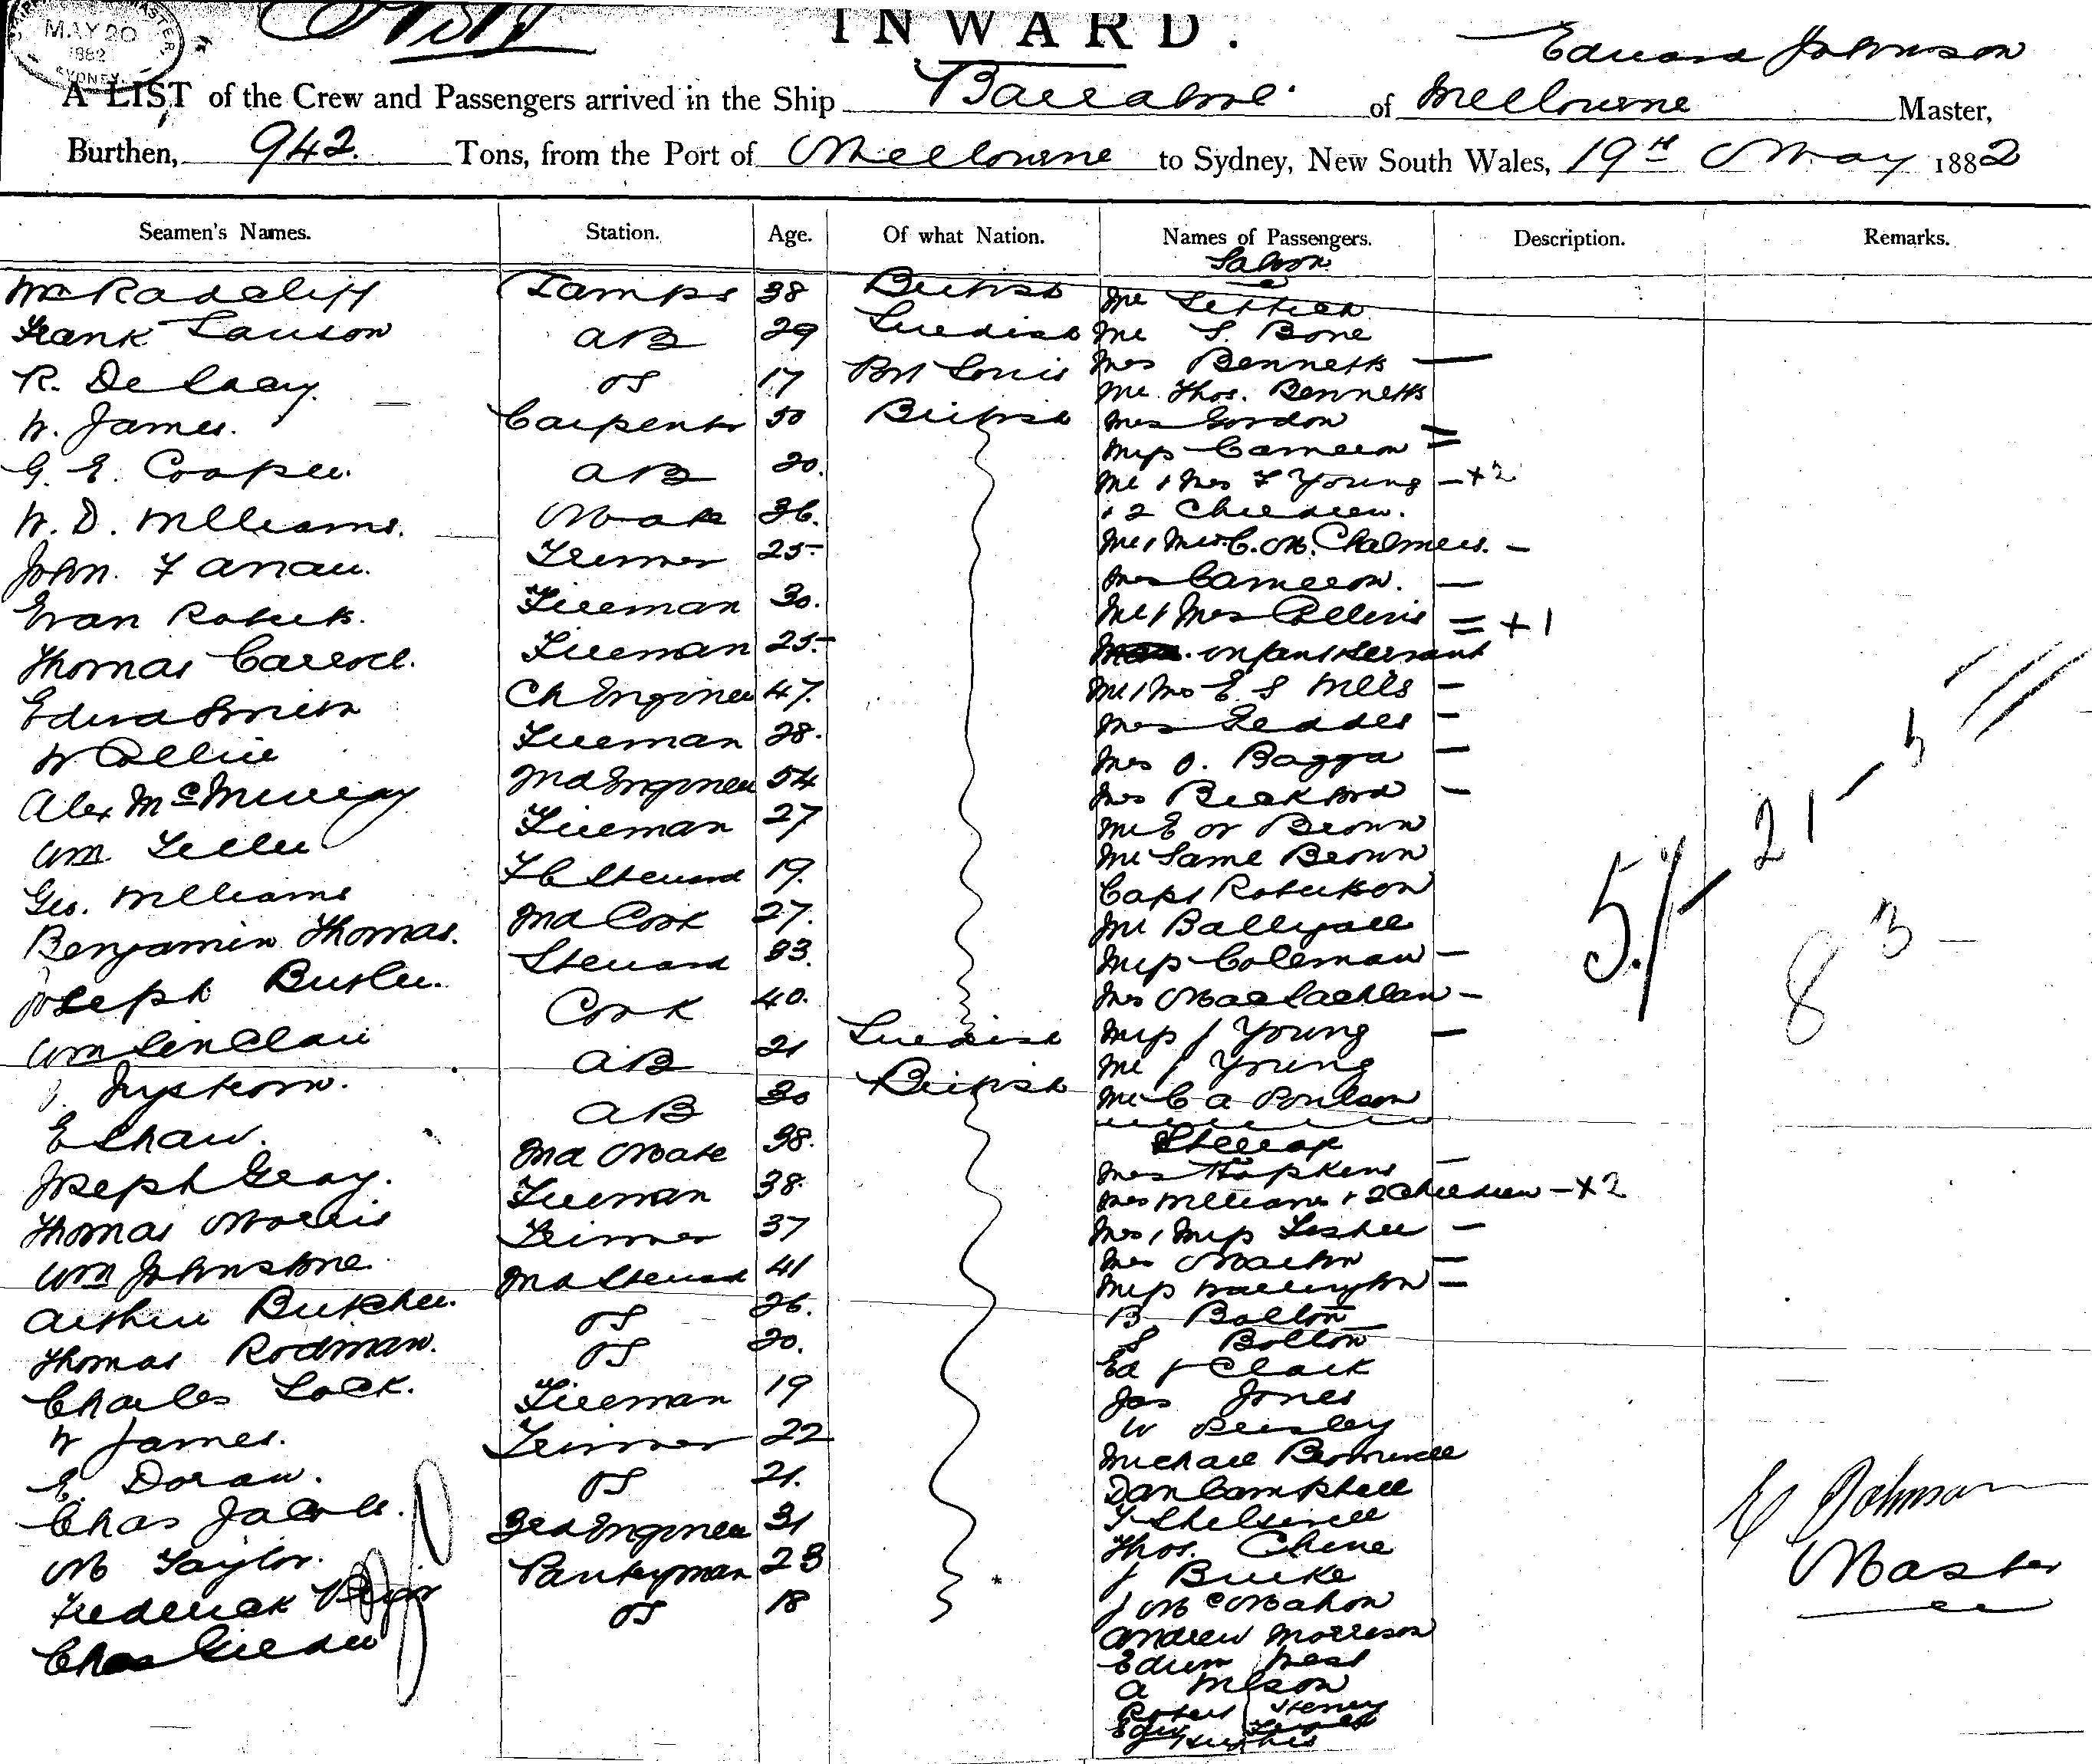 MAY 20
1882
SYDNEY.
INWARD.
Edward Johnson
A LIST of the Crew and Passengers arrived in the Ship Barrabool. of Melbourne Master,
Burthen, 942. Tons, from the Port of Melbourne to Sydney, New South Wales, 19th May 1882
Seamen's Names. Station. Age. Of what Nation. Names of Passengers. Description. Remarks.
Saloon
Wm Radcliff Lamps 38 British Mr
Frank Lawson AB 29 Swedish Mr S. Bone
R. De Lacy. OS 17 Port Louis Mrs Bennetts —
Mr Thos. Bennetts
W. James. Carpenter 50 British Mrs Gordon
Miss Cameron =
G. E. Cooper. AB 20. Mr & Mrs F Young — + 2
W. D. Williams. Mate 36. + 2 Children.
John. Fanau. Trimmer 25 Mr & Mrs C. M. Chalmers. —
Evan Roberts. Fireman 30. Mrs Cameron. —
Mr & Mrs Collins = + 1
Thomas Carroll. Fireman 25 infant & servant
Edwd Smith Ch Engineer 47. Mr & Mrs E S Wells —
W Collie Fireman 28. Mrs Geddes —
Alex McMurray 2nd Engineer 54 Mrs O. Bagga —
Mrs Beckford —
Wm Fireman 27 Mr E W Brown
Mr Same Brown
Geo. Williams F C Steward 19. Capt Robertson
Benjamin Thomas. 2nd Cook 27. Mr
Joseph Butler. Steward 33. Miss Coleman —
Wm Sinclair Cook 40. Mrs MacLachlan —
Nystrom. AB 21 Swedish Miss J Young —
Mr J Young
E Shaw. AB 30 British Mr C A Poulson
Steerage
Joseph Gray. 2nd Mate 38. Mrs Hopkins —
Thomas Morris Fireman 38. Mrs Williams + 2 Children — x 2
Wm Johnstone. Trimmer 37 Mrs & Miss —
Mrs Martin —
Arthur Butcher. 2nd Steward 41 Miss Warrington —
Thomas Rodman. OS 26. B Bolton
Charles Lock. OS 20. S Bolton
Ed J Clark
W James. Fireman 19 Jas Jones
W Beesley
E. Doran. Trimmer 22 Michael
Chas Jacobs. OS 21. Dan Campbell
M Taylor. 3rd Engineer 31
Thos. Chene
Frederick Pantryman 23 J Burke
Chas OS 18 J McMahon
Andrew Morrison
Edwin West
A Wilson
Robert Henry
Hughes
51 21 5
8 3 —
E Johnson
Master